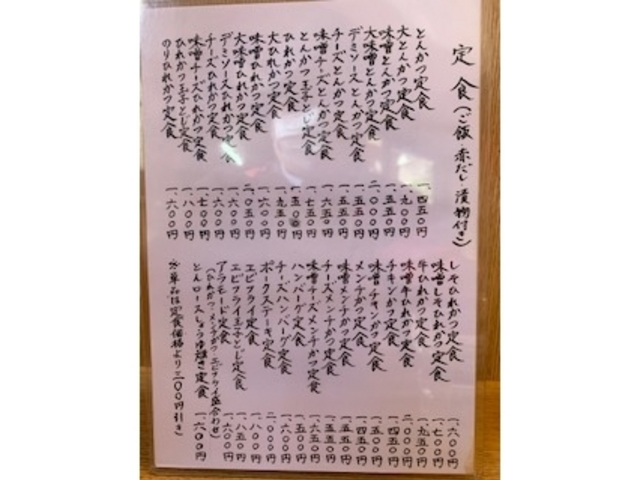 定食(ご飯 赤だし 漬物付き)
とんかつ定食 一、四五〇円
大とんかつ定食 一、九〇〇円
味噌とんかつ定食 一、五五〇円
大味噌とんかつ定食 二、〇〇〇円
デミソースとんかつ定食 一、五五〇円
チーズとんかつ定食 一、五五〇円
味噌チーズとんかつ定食 一、六五〇円
とんかつ玉子とじ定食 一、七五〇円
ひれかつ定食 一、五〇〇円
大ひれかつ定食 一、九五〇円
味噌ひれかつ定食 一、六〇〇円
大味噌ひれかつ定食 二、〇五〇円
デミソースひれかつ定食 一、六〇〇円
チーズひれかつ定食 一、六〇〇円
味噌チーズひれかつ定食 一、七〇〇円
ひれかつ玉子とじ定食 一、八〇〇円
のりひれかつ定食 一、六〇〇円
しそひれかつ定食 一、六〇〇円
味噌しそひれかつ定食 一、七〇〇円
牛ひれかつ定食 一、九五〇円
味噌牛ひれかつ定食 二、〇〇〇円
チキンかつ定食 一、四五〇円
味噌チキンかつ定食 一、五〇〇円
メンチかつ定食 一、四五〇円
味噌メンチかつ定食 一、五五〇円
チーズメンチかつ定食 一、五五〇円
味噌チーズメンチかつ定食 一、六五〇円
ハンバーグ定食 一、五〇〇円
チーズハンバーグ定食 一、六〇〇円
ポークステーキ定食 二、〇〇〇円
エビフライ定食 一、八〇〇円
エビフライ玉子とじ定食
アラモード定食 一、八五〇円
(ひれかつ・メンチかつ・エビフライ盛合わせ) 一、六〇〇円
とんロースしょうゆ焼き定食 一、六〇〇円
※単品は定食価格より二〇〇円引き)